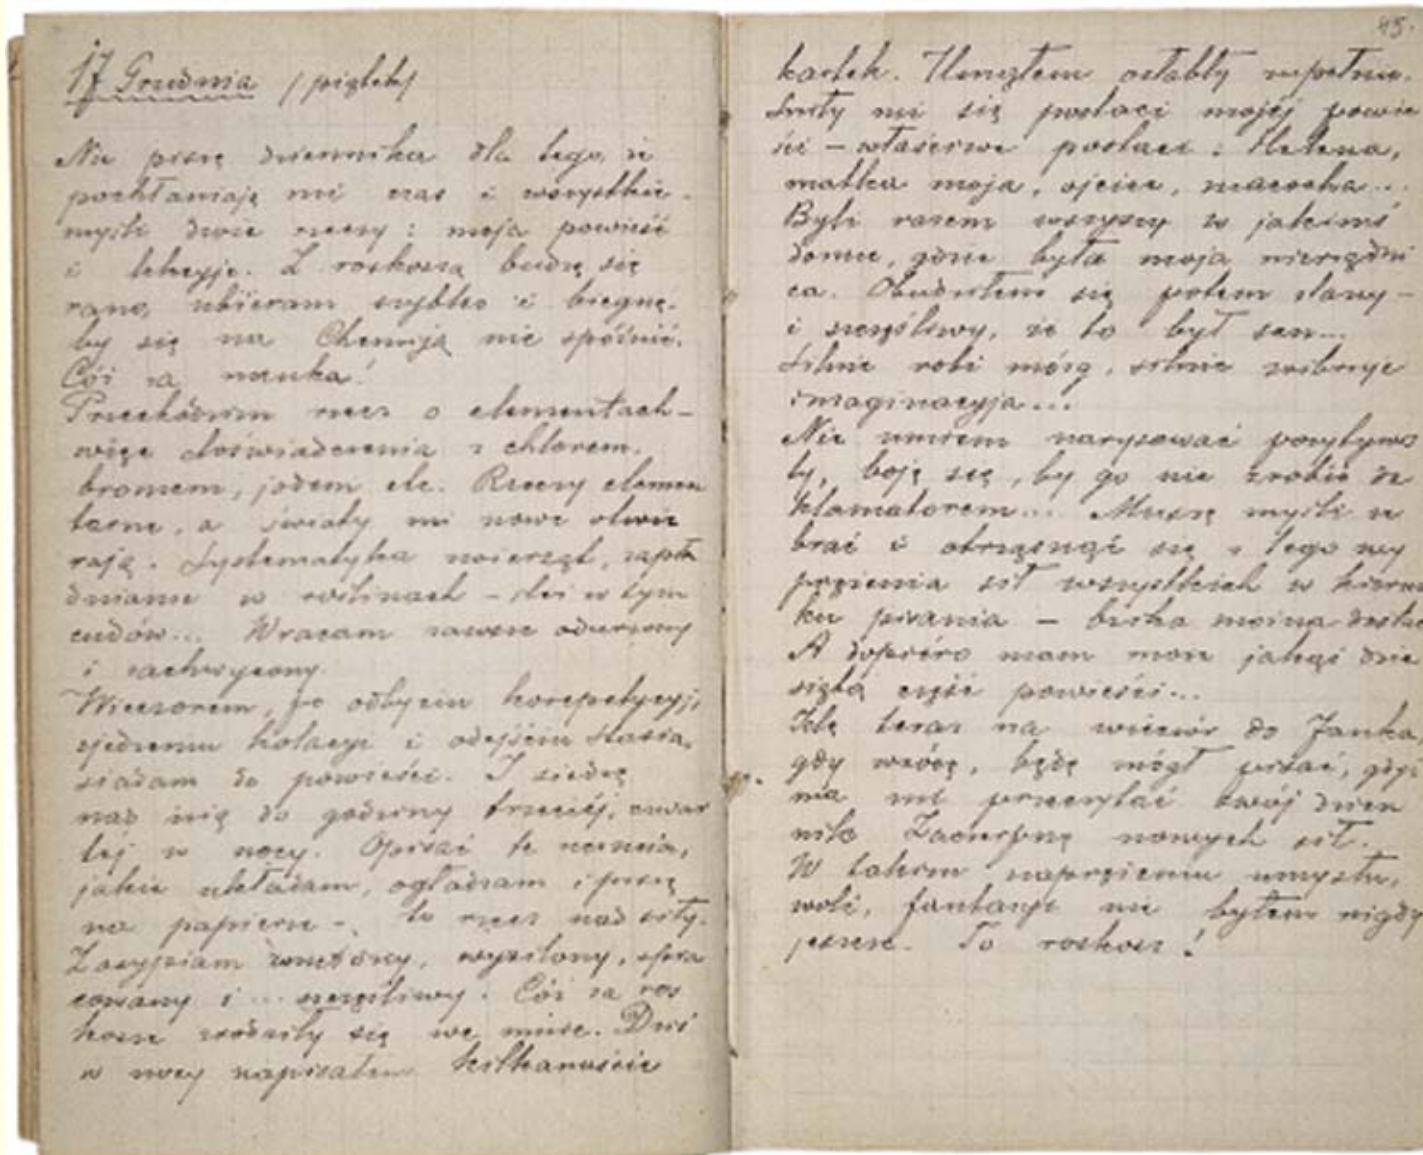 17 Grudnia /piątek/
Nie piszę dziennika dla tego, że
pochłaniają mi czas i wszystkie
myśli dwie rzeczy: moja powieść
i lekcyje. Z roskoszą budzę się
rano, ubieram szybko i biegnę,
by się na Chemiją nie spóźnić.
Cóż za nauka!
Przechodzim rzecz o elementach –
więc doświadczenia z chlorem,
bromem, jodem etc. Rzeczy elemen
tarne, a światy mi nowe otwie
rają. Systematyka zwierząt, zapła
dnianie w roślinach – ileż w tym
cudów... Wracam zawsze odurzony
i zachwycony.
Wieczorem, po odbyciu korepetycyj,
zjedzeniu kolacyi i odejściu Stasia,
siadam do powieści. I siedzę
nad nią do godziny trzeciéj, czwar
tej w nocy. Opisać te uczucia,
jakie układam, ogładzam i piszę
na papierze –, to rzecz nad siły.
Zasypiam znużony, wysilony, spra
cowany i ... szczęśliwy. Cóż za ros
kosze zrodziły się we mnie. Dziś
w nocy napisałem kilkanaście
45.
kartek. Usnąłem osłabły zupełnie.
Śniły mi się postaci mojéj powie
ści – właściwe postaci: Helena,
matka moja, ojciec, macocha...
Byli razem wszyscy w jakimś
domu, gdzie była moja nierządni
ca. Obudziłem się potem łzawy –
i szczęśliwy, że to był sen...
Silnie robi mózg, silnie wibruje
imaginacyja...
Nie umiem narysować pozytywis
ty, boję się, by go nie zrobić de
klamatorem... Muszę myśli ze
brać i otrząsnąć się z tego wy
prężenia sił wszystkich w kierun
ku pisania – bzika można dostać
A dopiéro mam może jakąś dzie
siątą część powieści...
Idę teraz na wieczór do Janka,
gdy wrócę, będę mógł pisać, gdyż
ma mi przeczytać swój dzien
nik. Zaczerpnę nowych sił.
W takim naprężeniu umysłu,
woli, fantazji nie byłem nigdy
jeszcze. To roskosz!